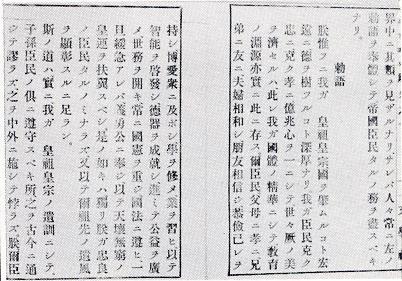 界中ニ其類ヲ見ザルナリサレバ人々常ニ左ノ
勅語ヲ奉體シテ帝國臣民タルノ務ヲ盡スベキ
ナリ。
勅語
朕惟フニ我ガ　皇祖皇宗國ヲ肇ムルコト宏
遠ニ德ヲ樹ツルコト深厚ナリ我ガ臣民克ク
忠ニ克ク孝ニ億兆心ヲ一ニシテ世々厥ノ美
ヲ濟セルハ此レ我ガ國體ノ精華ニシテ教育
ノ淵源亦實ニ此ニ存ス爾臣民父母ニ孝ニ兄
弟ニ友ニ夫婦相和シ朋友相信ジ恭儉己レヲ
持シ博愛衆ニ及ボシ學ヲ修メ業ヲ習ヒ以テ
智能ヲ啓發シ德器ヲ成就シ進ミテ公益ヲ廣
メ世務ヲ開キ常ニ國憲ヲ重ジ國法ニ遵ヒ一
旦緩急アレバ義勇公ニ奉ジ以テ天壤無窮ノ
皇運ヲ扶翼スベシ是ノ如キハ獨リ朕ガ忠良
ノ臣民タルノミナラズ又以テ爾祖先ノ遺風
ヲ顯彰スルニ足ラン。
斯ノ道ハ實ニ我ガ　皇祖皇宗ノ遺訓ニシテ
子孫臣民ノ俱ニ遵守スベキ所之ヲ古今ニ通
シテ謬ラズ之ヲ中外ニ施シテ悖ラズ朕爾臣